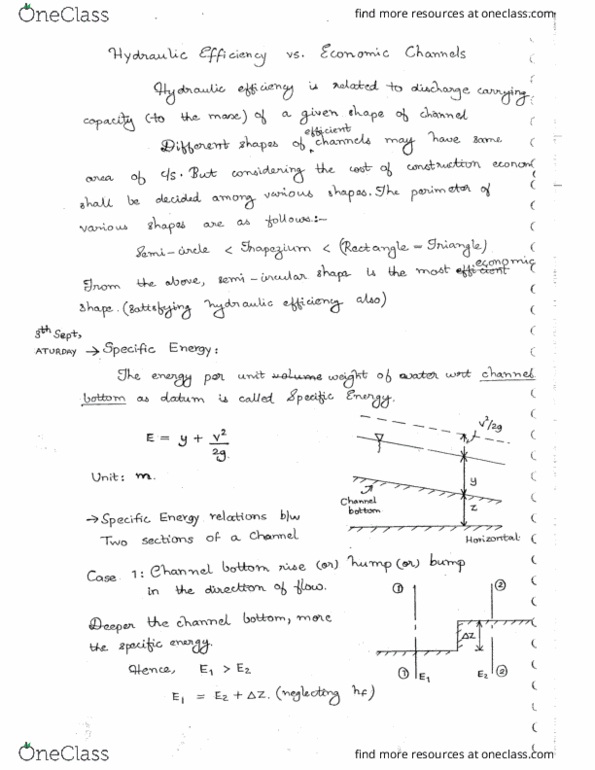 OneClass
find more resources at oneclass.com
Hydraulic Efficiency vs. Economic Channels
Hydraulic efficiency is related to discharge carrying
capacity (to the max) of a given shape of channel
Different shapes of efficient channels may have same
area of c/s. But considering the cost of construction econom
shall be decided among various shapes. The perimeter of
various shapes are as follows:-
Semi-circle < Trapezium < (Rectangle = Triangle)
From the above, semi-circular shape is the most efficient economic
shape. (Satisfying hydraulic efficiency also)
8th Sept,
ATURDAY → Specific Energy:
The energy per unit volume weight of water wrt channel
bottom as datum is called Specific Energy.
E = y + v²/2g.
Unit: m.
v²/2g
y
z
Channel
bottom
Horizontal
→ Specific Energy relations b/w
Two sections of a Channel
Case 1: Channel bottom rise (or) hump (or) bump
in the direction of flow.
Deeper the channel bottom, more
the specific energy.
Hence, E₁ > E₂
E₁ = E₂ + ΔZ. (neglecting hf)
① ②
ΔZ
① E₁ E₂ ②
OneClass
find more resources at oneclass.com